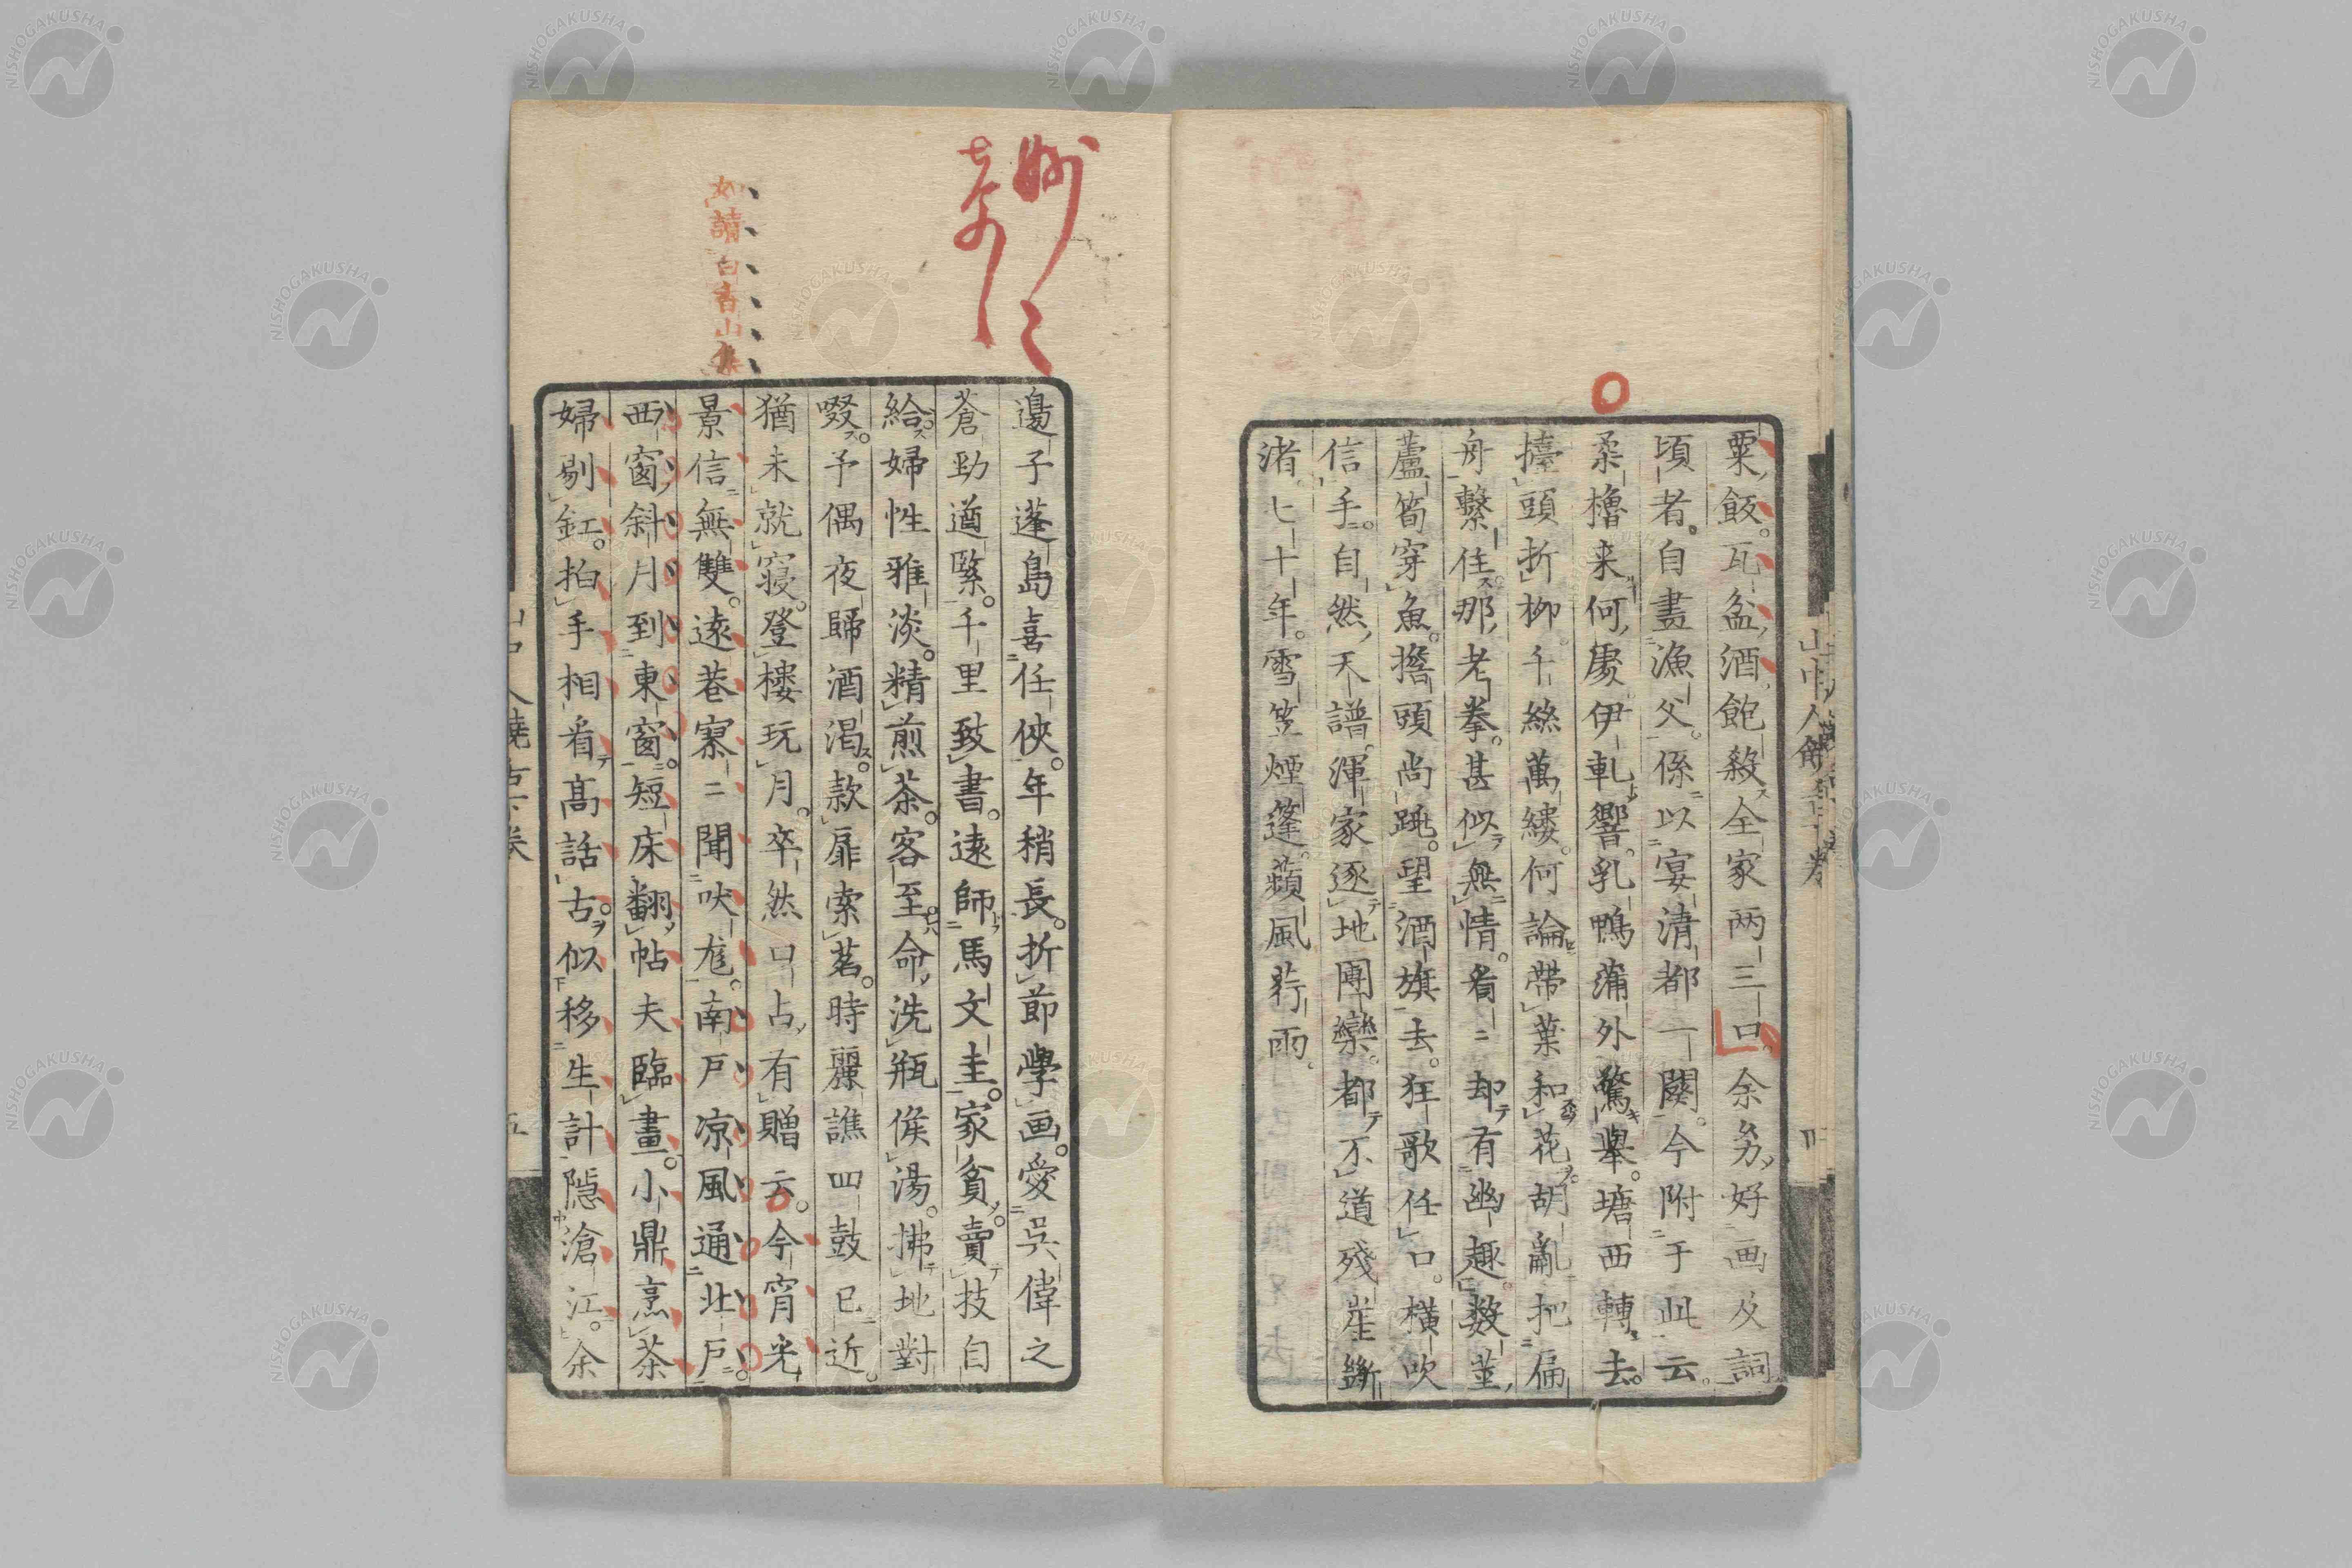 粟飯。瓦盆酒飽殺全家両三口。余務好画及詞
頃者。自畫漁父。係以宴清都一闋。今附于此云。
柔櫓来何處伊軋響。乳鴨蒲外驚擧。塘西轉去。
擡頭折柳千絲萬縷。何論帶葉和花。胡亂把偏
舟繫住。那老拳。甚似無情。看〻却有幽趣。数莖
蘆筍穿魚。擔頭尚跳。望酒旗去。狂歌任口。横吹
信手。自然天譜。渾家逐地團欒。都不道残崖斷
渚。七十年。雪笠煙篷。蘋風荇雨。
邊子蓬島喜任俠。年稍長。折節學画。愛呉偉之
蒼勁遒緊。千里致書。遠師馬文圭。家貧。賣技自
給。婦性雅淡。精煎茶。客至。命洗瓶候湯。拂地對
啜。予偶夜歸酒渇。款扉索茗。時麗譙四鼓已近。
猶未就寢。登樓玩月。卒然口占有贈云。今宵光
景信無雙。遠巷寥〻聞吠尨。南戸凉風通北戸。
西窗斜月到東窗。短床翻帖夫臨畫。小鼎烹茶
婦剔釭。拍手相看高話古。似移生計隠滄江。余
妙〻
如讀白香山集
NISHOGAKUSHA